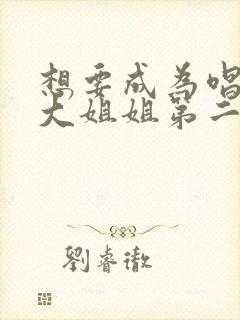 想要成為唱
大姐姐第二
劉睿徹